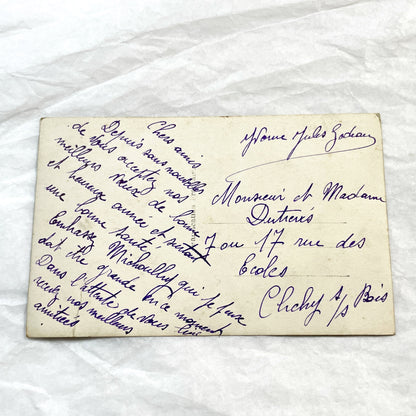 Chers amis
Depuis sans nouvelles
de vous acceptez nos
meilleurs vœux de bonne
et heureuse année et surtout
une bonne santé
Embrassez Michou qui je pense
doit être grande en ce moment
Dans l'attente de vous lire
recevez nos meilleurs
amitiés
Yvonne Jules
Monsieur et Madame
7 ou 17 rue des
Ecoles
Clichy s/s Bois